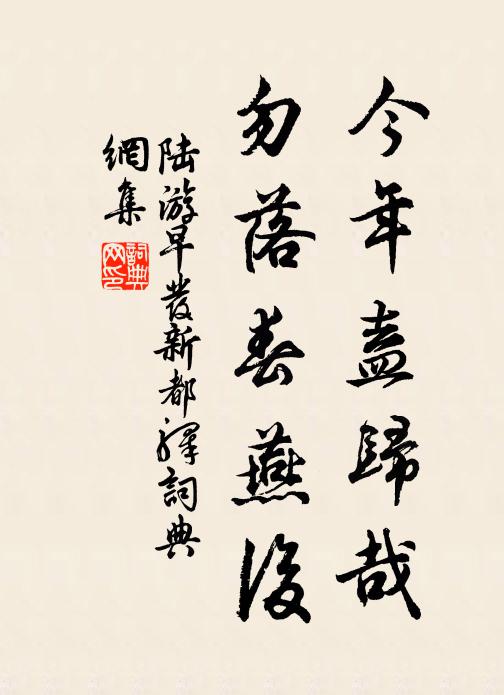 今年盍歸哉
勿落春燕後
陸游早發新都驛詞典
網集
詞典
网印